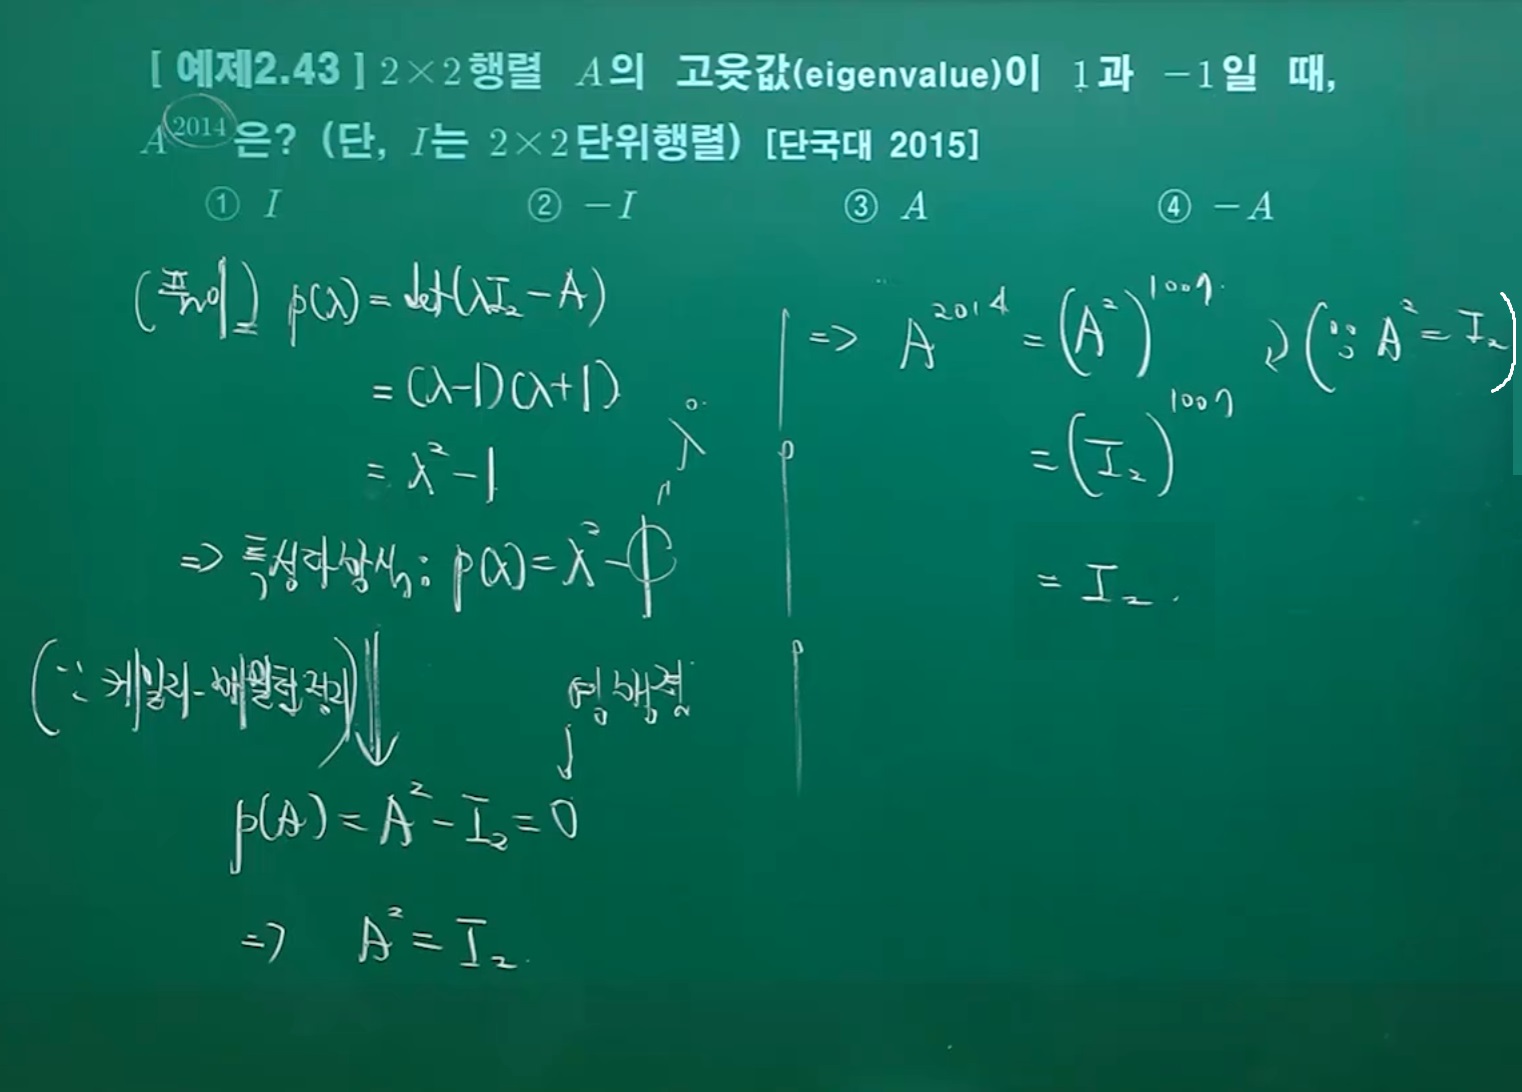 [ 예제2.43 ] 2×2 행렬 A의 고윳값(eigenvalue)이 1과 -1일 때,
A^2014 은? (단, I는 2×2 단위행렬) [단국대 2015]
① I ② -I ③ A ④ -A
(풀이) p(λ) = det(λI₂ - A)
= (λ-1)(λ+1)
= λ² - 1
⇒ 특성다항식 : p(λ) = λ² - 1
λ⁰
(∵ 케일리-해밀턴 정리)
영행렬
p(A) = A² - I₂ = O
⇒ A² = I₂
⇒ A^2014 = (A²)^1007 (∵ A² = I₂)
= (I₂)^1007
= I₂.